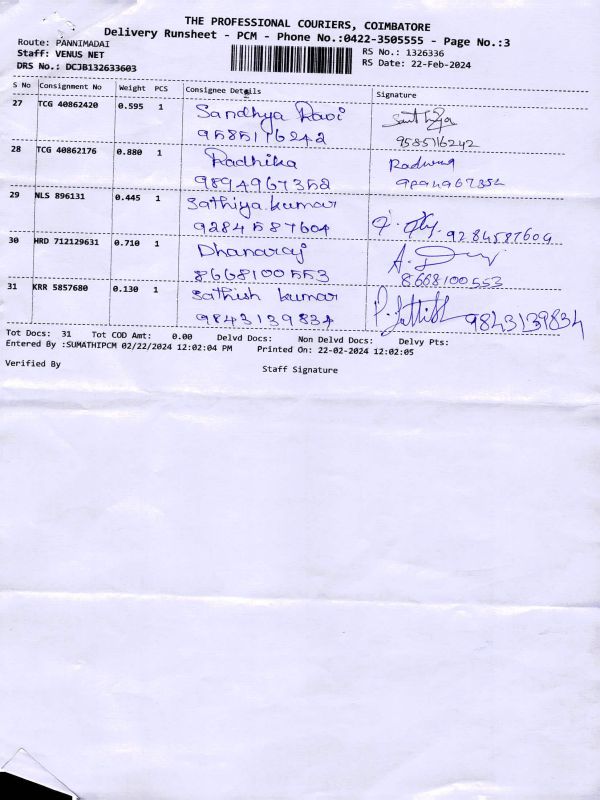 THE PROFESSIONAL COURIERS, COIMBATORE
Delivery Runsheet - PCM - Phone No.:0422-3505555 - Page No.:3
Route: PANNIMADAI
RS No.: 1326336
Staff: VENUS NET
RS Date: 22-Feb-2024
DRS No.: DCJB132633603
S No Consignment No Weight PCS Consignee Details Signature
27 TCG 40862420 0.595 1 Sandhya Ravi
9585116242 9585116242
28 TCG 40862176 0.880 1 Radhika
9894967352 9894967352
29 NLS 896131 0.445 1 Sathiya kumar
9284587604 9284587604
30 HRD 712129631 0.710 1 Dhanaraj
8668100553 8668100553
31 KRR 5857680 0.130 1 Sathish kumar
9843139834 9843139834
Tot Docs: 31 Tot COD Amt: 0.00 Delvd Docs: Non Delvd Docs: Delvy Pts:
Entered By :SUMATHIPCM 02/22/2024 12:02:04 PM Printed On: 22-02-2024 12:02:05
Verified By Staff Signature